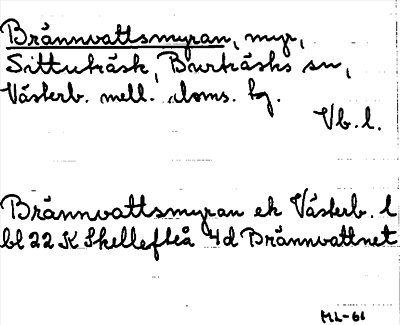 Brännvattsmyran, myr,
Sittuträsk, Burträsks sn,
Västerb. mell. doms. tg.
Vb.l.
Brännvattsmyran ek Västerb. l
bl 22 K Skellefteå 4d Brännvattnet
ML-61